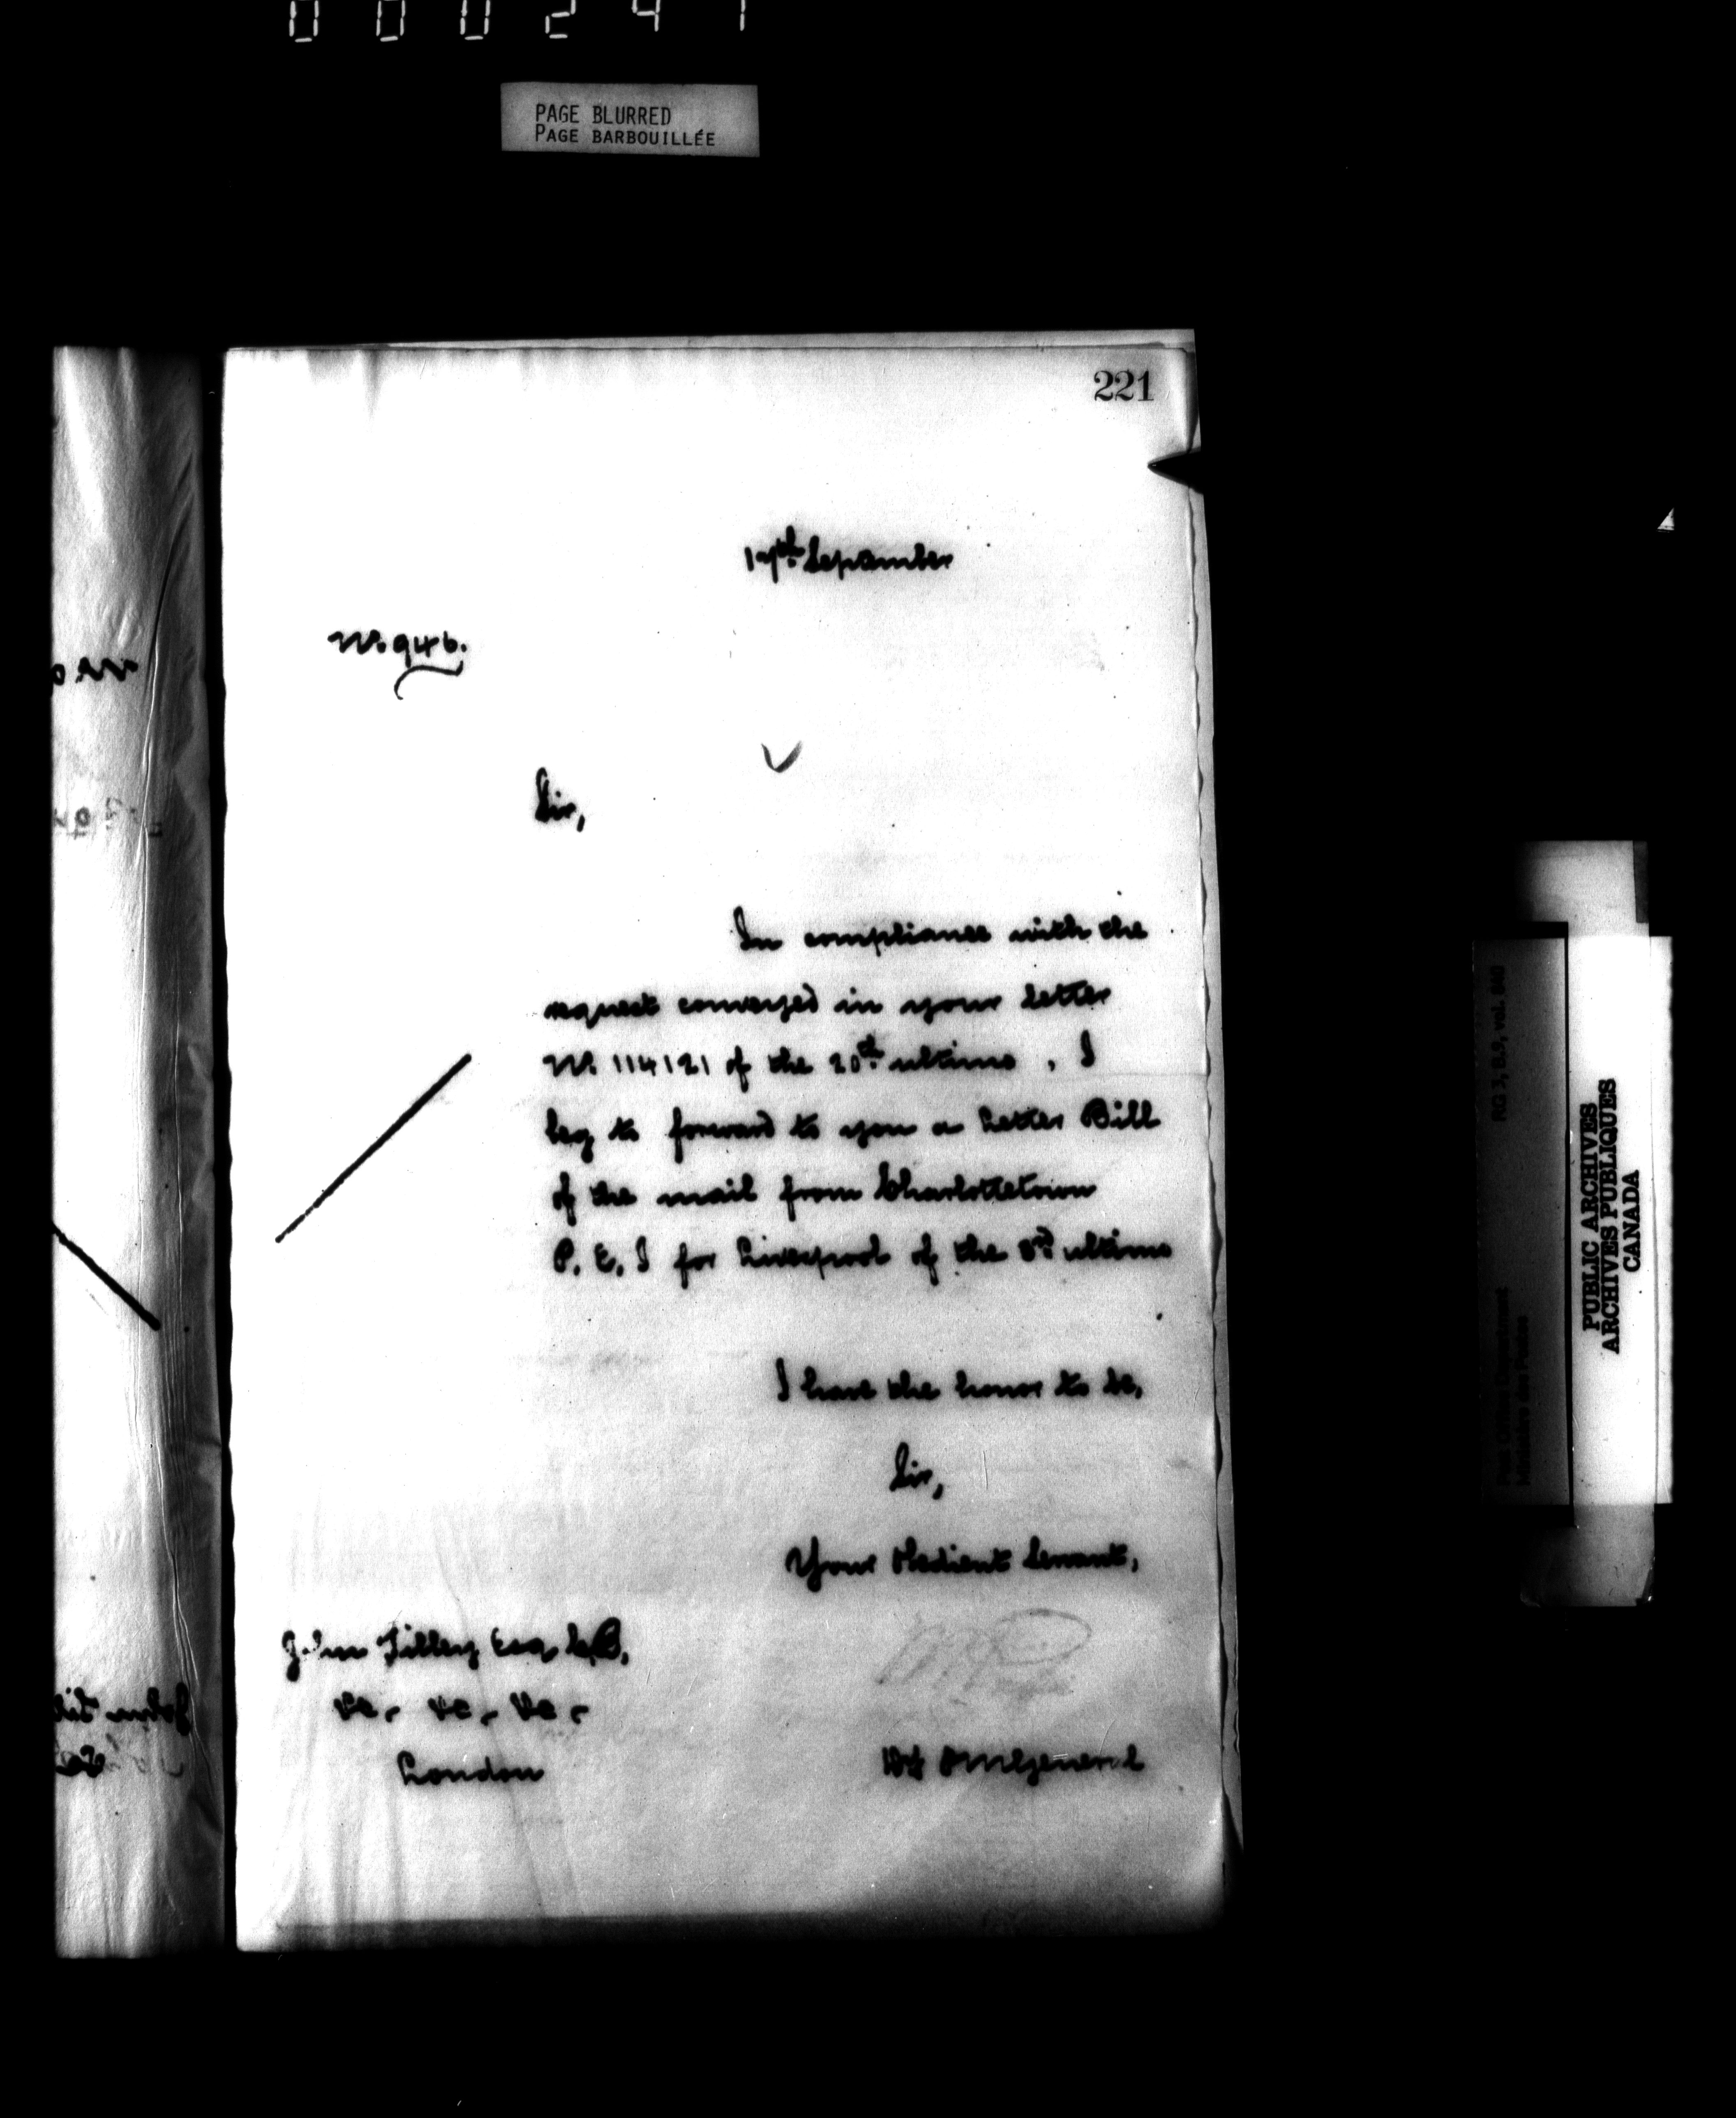 000241
PAGE BLURRED
PAGE BARBOUILLÉE
221
17th September
No. 946.
Sir,
In compliance with the
request conveyed in your letter
No. 114121 of the 20th ultimo, I
beg to forward to you a Letter Bill
of the mail from Charlottetown
P. E. I for Liverpool of the 3rd ultimo
I have the honor to be,
Sir,
Your Obedient Servant,
John Tilley Esq C.B.
&c, &c, &c,
London
PMGeneral
RG 3, B.9, vol.
Post Office Department
Ministère des Postes
PUBLIC ARCHIVES
ARCHIVES PUBLIQUES
CANADA